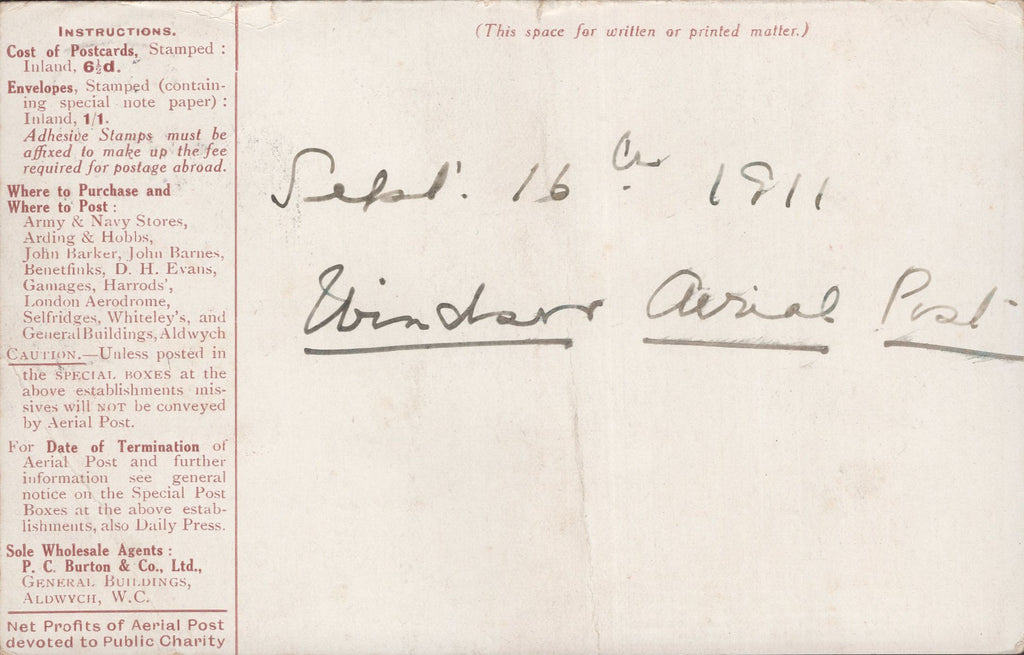 INSTRUCTIONS.
Cost of Postcards, Stamped :
Inland, 6½d.
Envelopes, Stamped (contain-
ing special note paper) :
Inland, 1/1.
Adhesive Stamps must be
affixed to make up the fee
required for postage abroad.
Where to Purchase and
Where to Post :
Army & Navy Stores,
Arding & Hobbs,
John Barker, John Barnes,
Benetfinks, D. H. Evans,
Gamages, Harrods',
London Aerodrome,
Selfridges, Whiteley's, and
General Buildings, Aldwych
CAUTION.—Unless posted in
the SPECIAL BOXES at the
above establishments mis-
sives will NOT be conveyed
by Aerial Post.
For Date of Termination of
Aerial Post and further
information see general
notice on the Special Post
Boxes at the above estab-
lishments, also Daily Press.
Sole Wholesale Agents :
P. C. Burton & Co., Ltd.,
GENERAL BUILDINGS,
ALDWYCH, W.C.
Net Profits of Aerial Post
devoted to Public Charity
(This space for written or printed matter.)
Sept. 16th 1911
Windsor Aerial Post